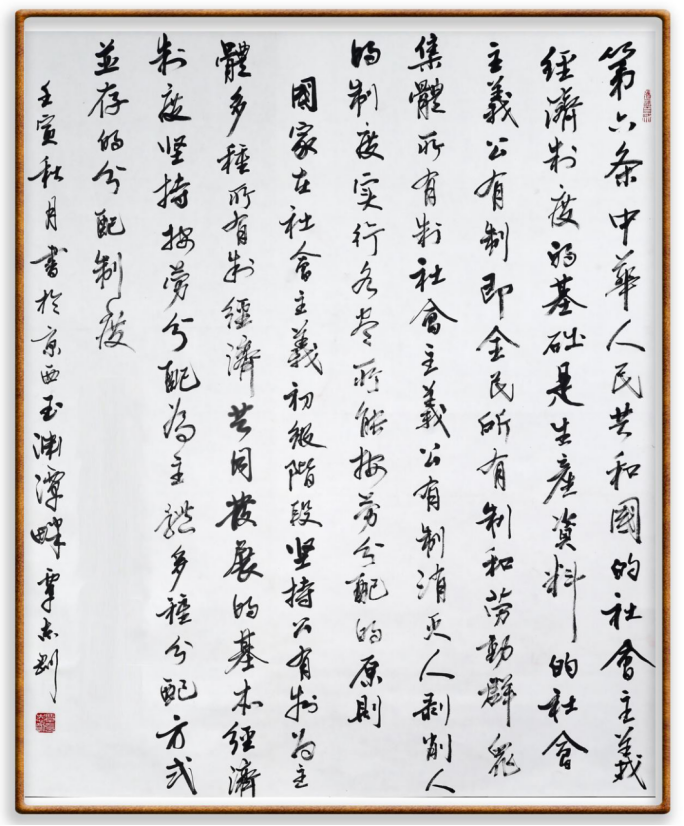 第六条中華人民共和國的社會主義
經濟制度的基础是生產資料的社會
主義公有制即全民所有制和劳動群衆
集體所有制社會主義公有制消灭人剥削人
的制度实行各尽所能按劳分配的原則
國家在社會主義初級階段坚持公有制为主
體多種所有制經濟共同發展的基本經濟
制度坚持按劳分配為主體多種分配方式
並存的分配制度
壬寅秋月書於京西玉渊潭畔覃志刚